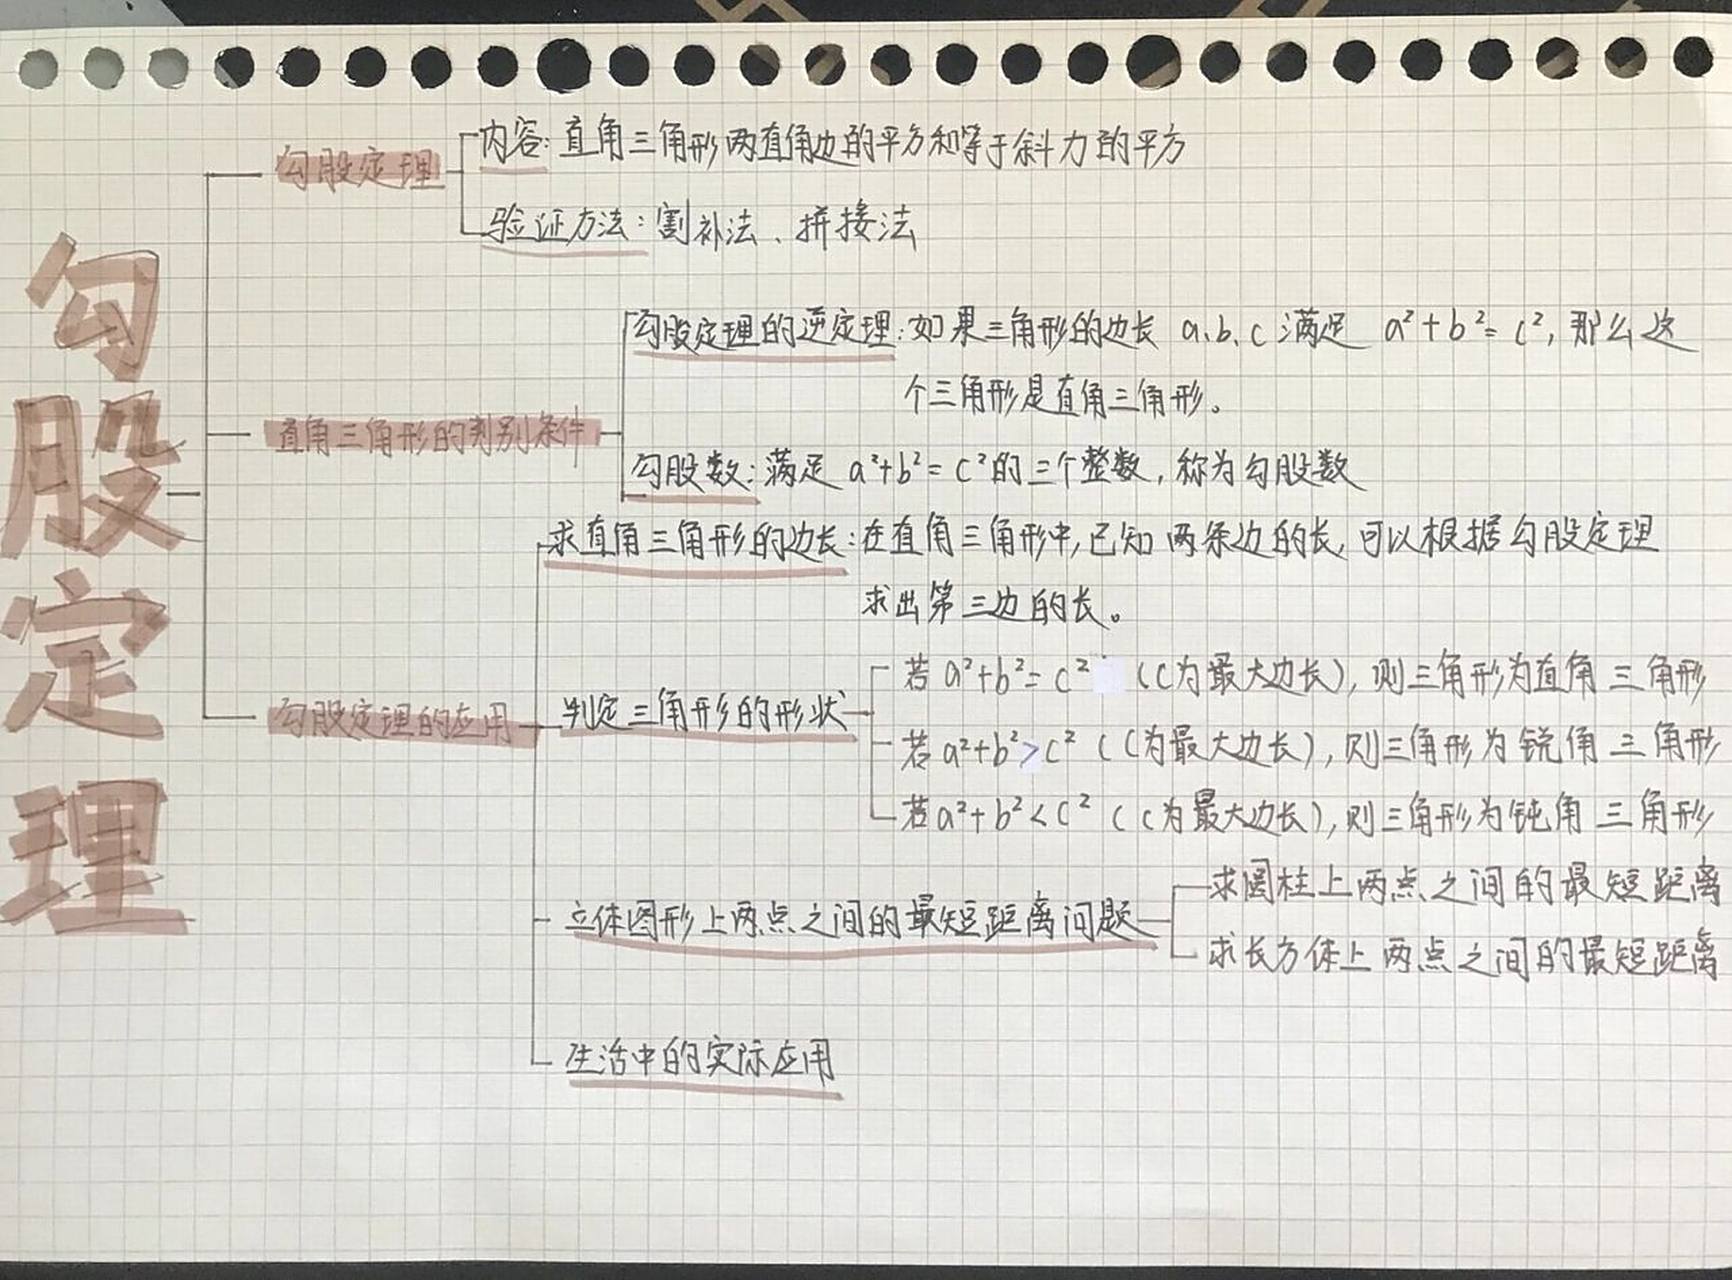 勾股定理
勾股定理
内容：直角三角形两直角边的平方和等于斜力的平方
验证方法：割补法、拼接法
直角三角形的判别条件
勾股定理的逆定理：如果三角形的边长 a、b、c 满足 a²+b²=c²，那么这
个三角形是直角三角形。
勾股数：满足 a²+b²=c²的三个整数，称为勾股数
勾股定理的应用
求直角三角形的边长：在直角三角形中，已知两条边的长，可以根据勾股定理
求出第三边的长。
判定三角形的形状
若 a²+b²=c² （c为最大边长），则三角形为直角三角形
若 a²+b²>c² （c为最大边长），则三角形为锐角三角形
若 a²+b²<c² （c为最大边长），则三角形为钝角三角形
立体图形上两点之间的最短距离问题
求圆柱上两点之间的最短距离
求长方体上两点之间的最短距离
生活中的实际应用